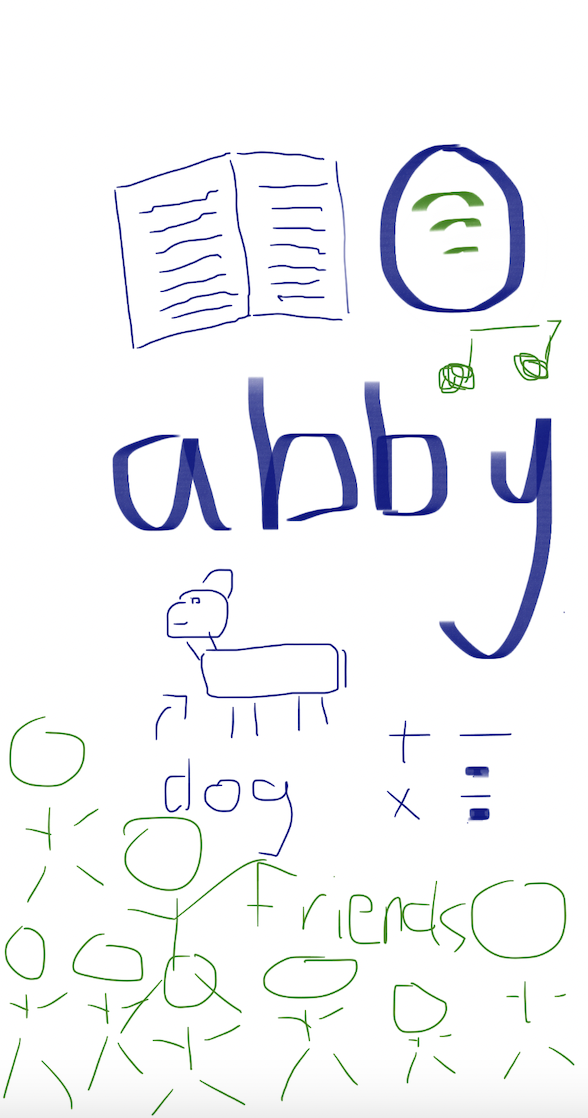 abby
+ −
dog
× ÷
friends